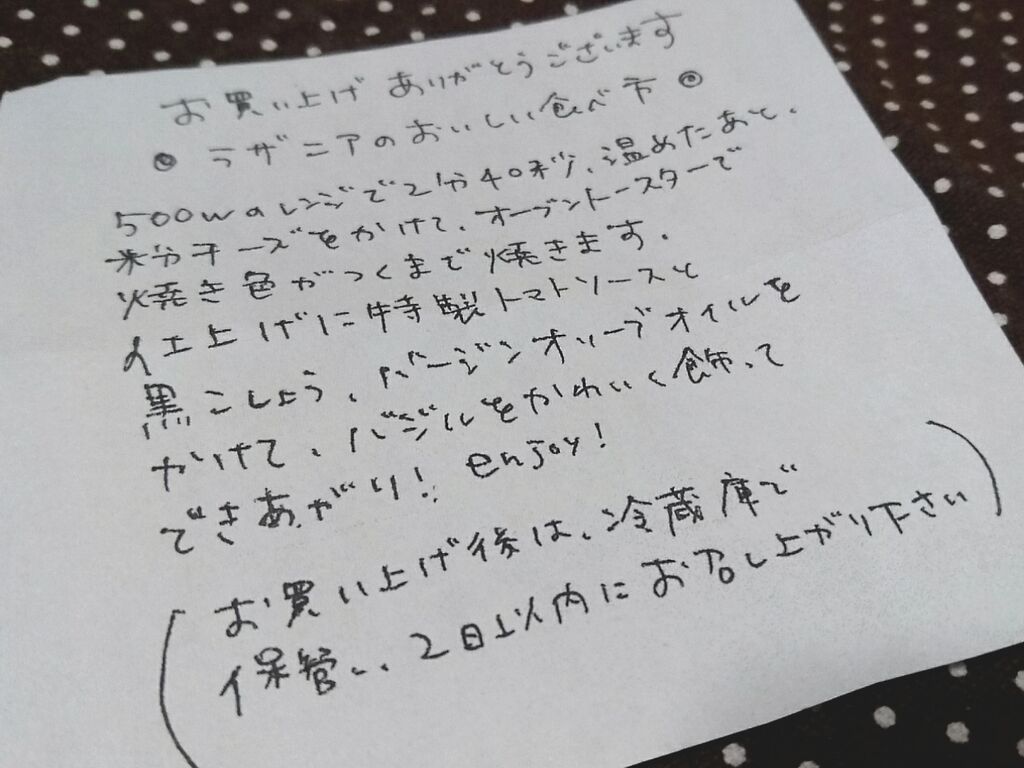 お買い上げありがとうございます
◎ ラザニアのおいしい食べ方 ◎
500wのレンジで2分40秒、温めたあと、
粉チーズをかけて、オーブントースターで
焼き色がつくまで焼きます。
仕上げに特製トマトソースと
黒こしょう、バージンオリーブオイルを
かけて、バジルをかわいく飾って
できあがり!! enjoy!
(お買い上げ後は、冷蔵庫で
保管し、2日以内にお召し上がり下さい)